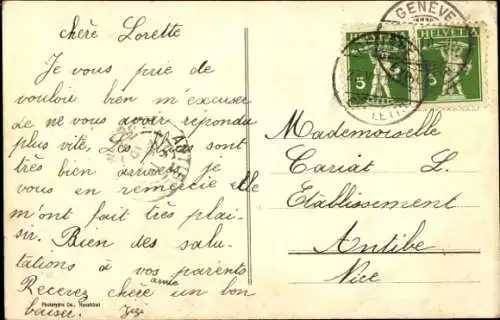 chère Lorette
Je vous prie de
vouloir bien m'excuser
de ne vous avoir répondu
plus vite. Les sont
très bien arrivées, je
vous en remercie elle
m'ont fait très plai-
sir. Bien des salu-
tations à vos parents
Recevez chère amie un bon
baiser. Zizi
Phototypie Co., Neuchâtel
GENÈVE
HELVETIA
HELVETIA
5
5
LETTR
ANTIBES
Mademoiselle
Cariat L.
Etablissement
Antibe
Nice